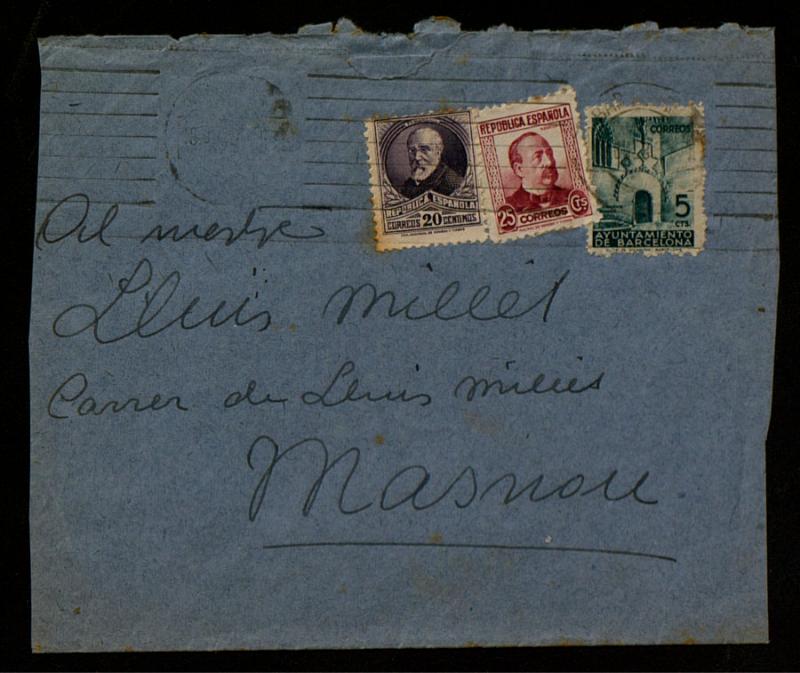 REPUBLICA ESPAÑOLA
CORREOS 20 CENTIMOS
REPUBLICA ESPAÑOLA
25 CORREOS Cts
CORREOS
5
CTS
AYUNTAMIENTO
DE BARCELONA
Al mestre
Lluis Millet
Carrer de Lluis Millet
Masnou